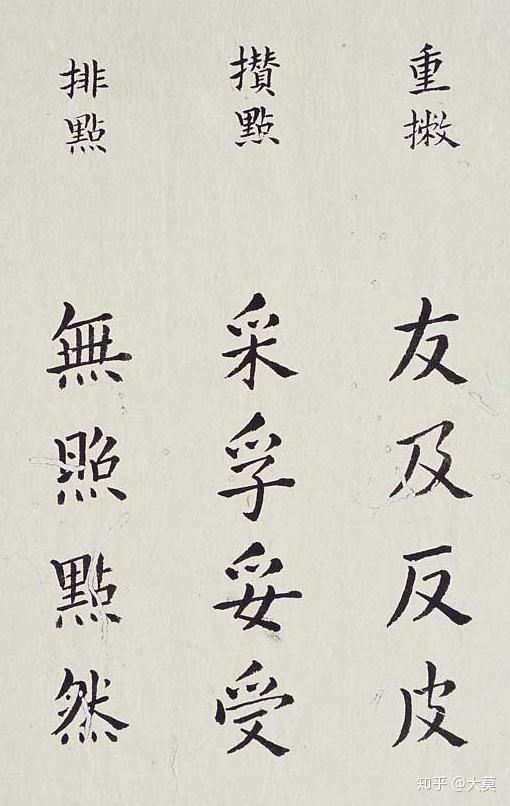 重撇
友及反皮
攢點
采孚妥受
排點
無照點然
知乎 @大莫